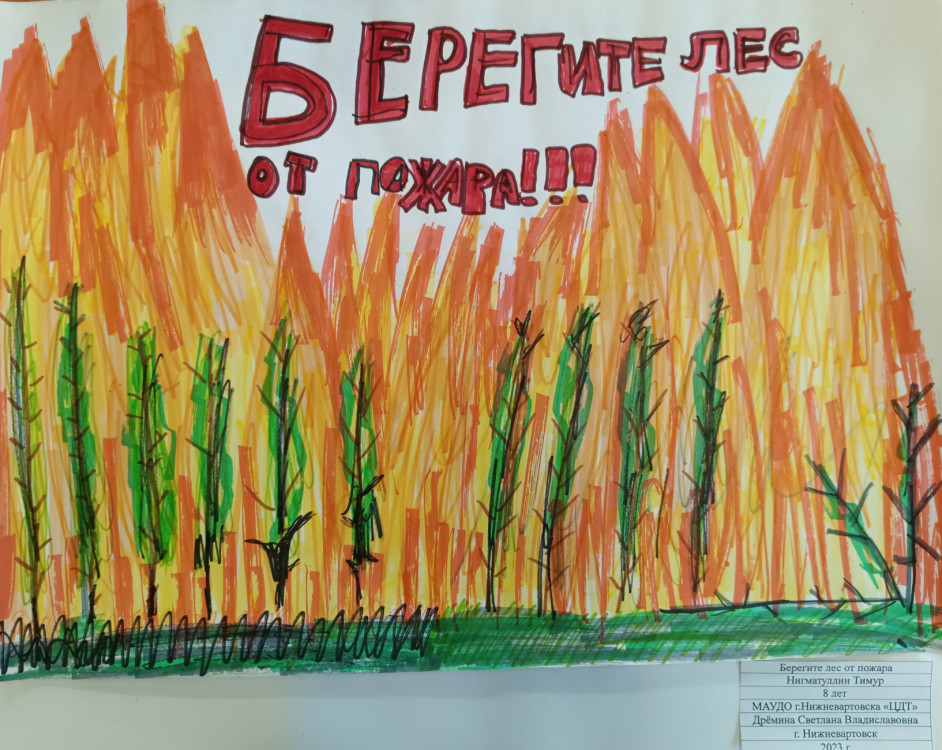 БЕРЕГИТЕ ЛЕС
ОТ ПОЖАРА!!!
Берегите лес от пожара
Нигматуллин Тимур
8 лет
МАУДО г.Нижневартовска «ЦДТ»
Дрёмина Светлана Владиславовна
г. Нижневартовск
2023 г